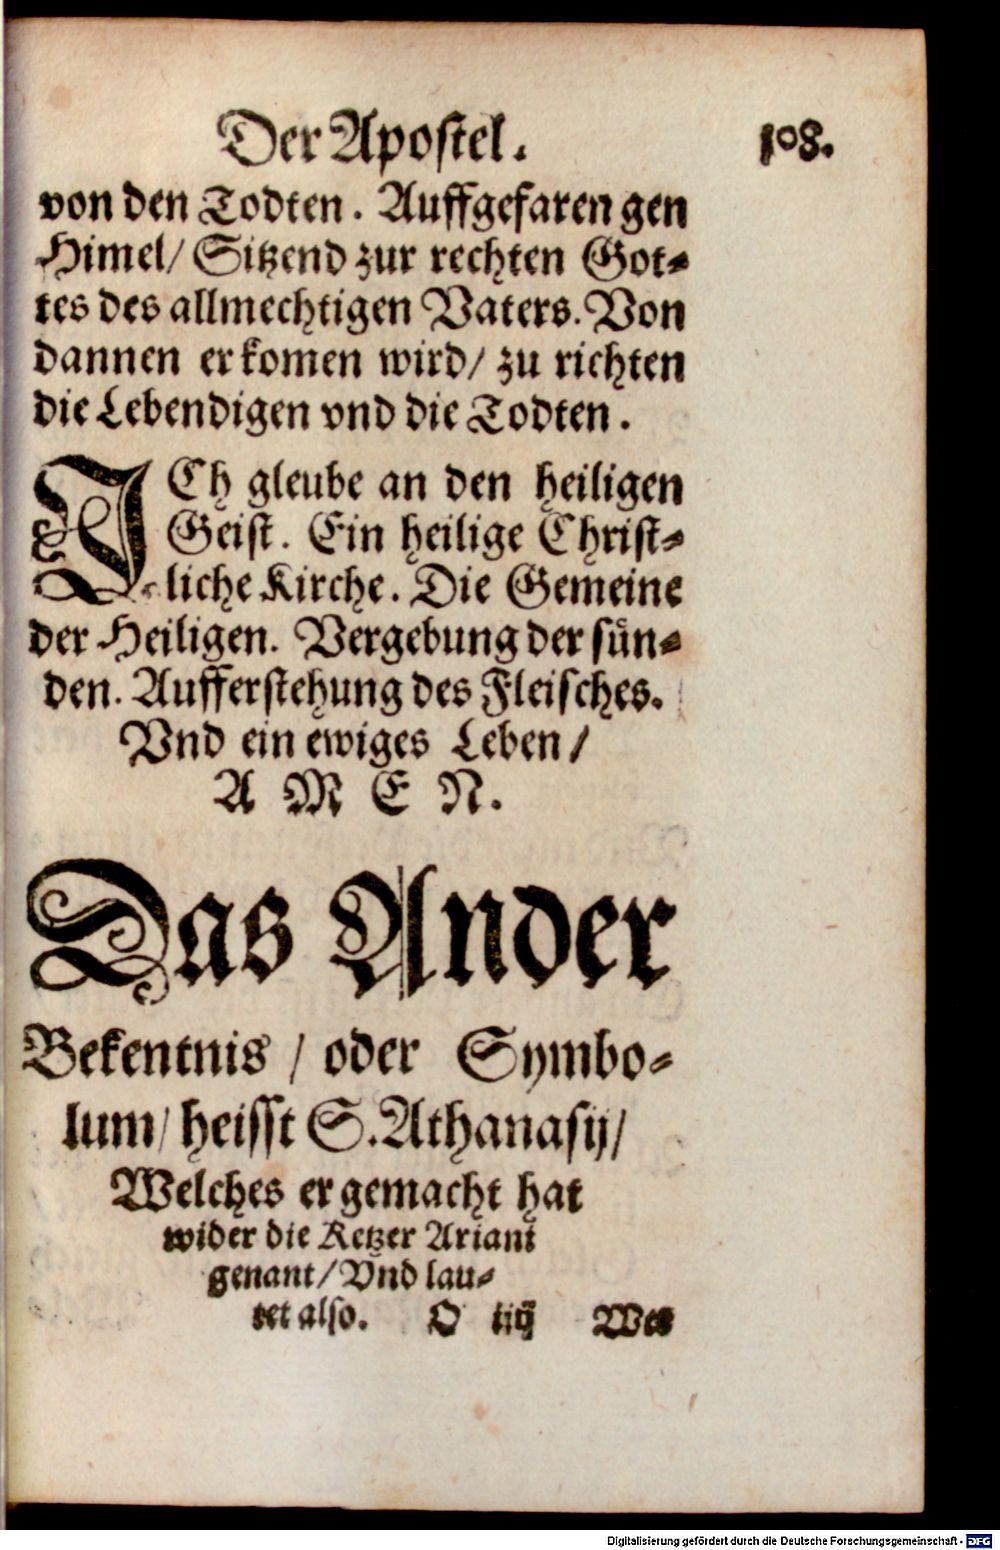 Der Apostel. 108.
von den Todten. Auffgefaren gen
Himel/ Sitzend zur rechten Got⸗
tes des allmechtigen Vaters. Von
dannen er komen wird/ zu richten
die Lebendigen vnd die Todten.
ICh gleube an den heiligen
Geist. Ein heilige Christ⸗
liche Kirche. Die Gemeine
der Heiligen. Vergebung der sün⸗
den. Aufferstehung des Fleisches.
Vnd ein ewiges Leben/
A M E N.
Das Ander
Bekentnis / oder Symbo⸗
lum/ heisst S. Athanasij/
Welches er gemacht hat
wider die Ketzer Ariani
genant/ Vnd lau⸗
tet also. O iiij Wer
Digitalisierung gefördert durch die Deutsche Forschungsgemeinschaft - DFG